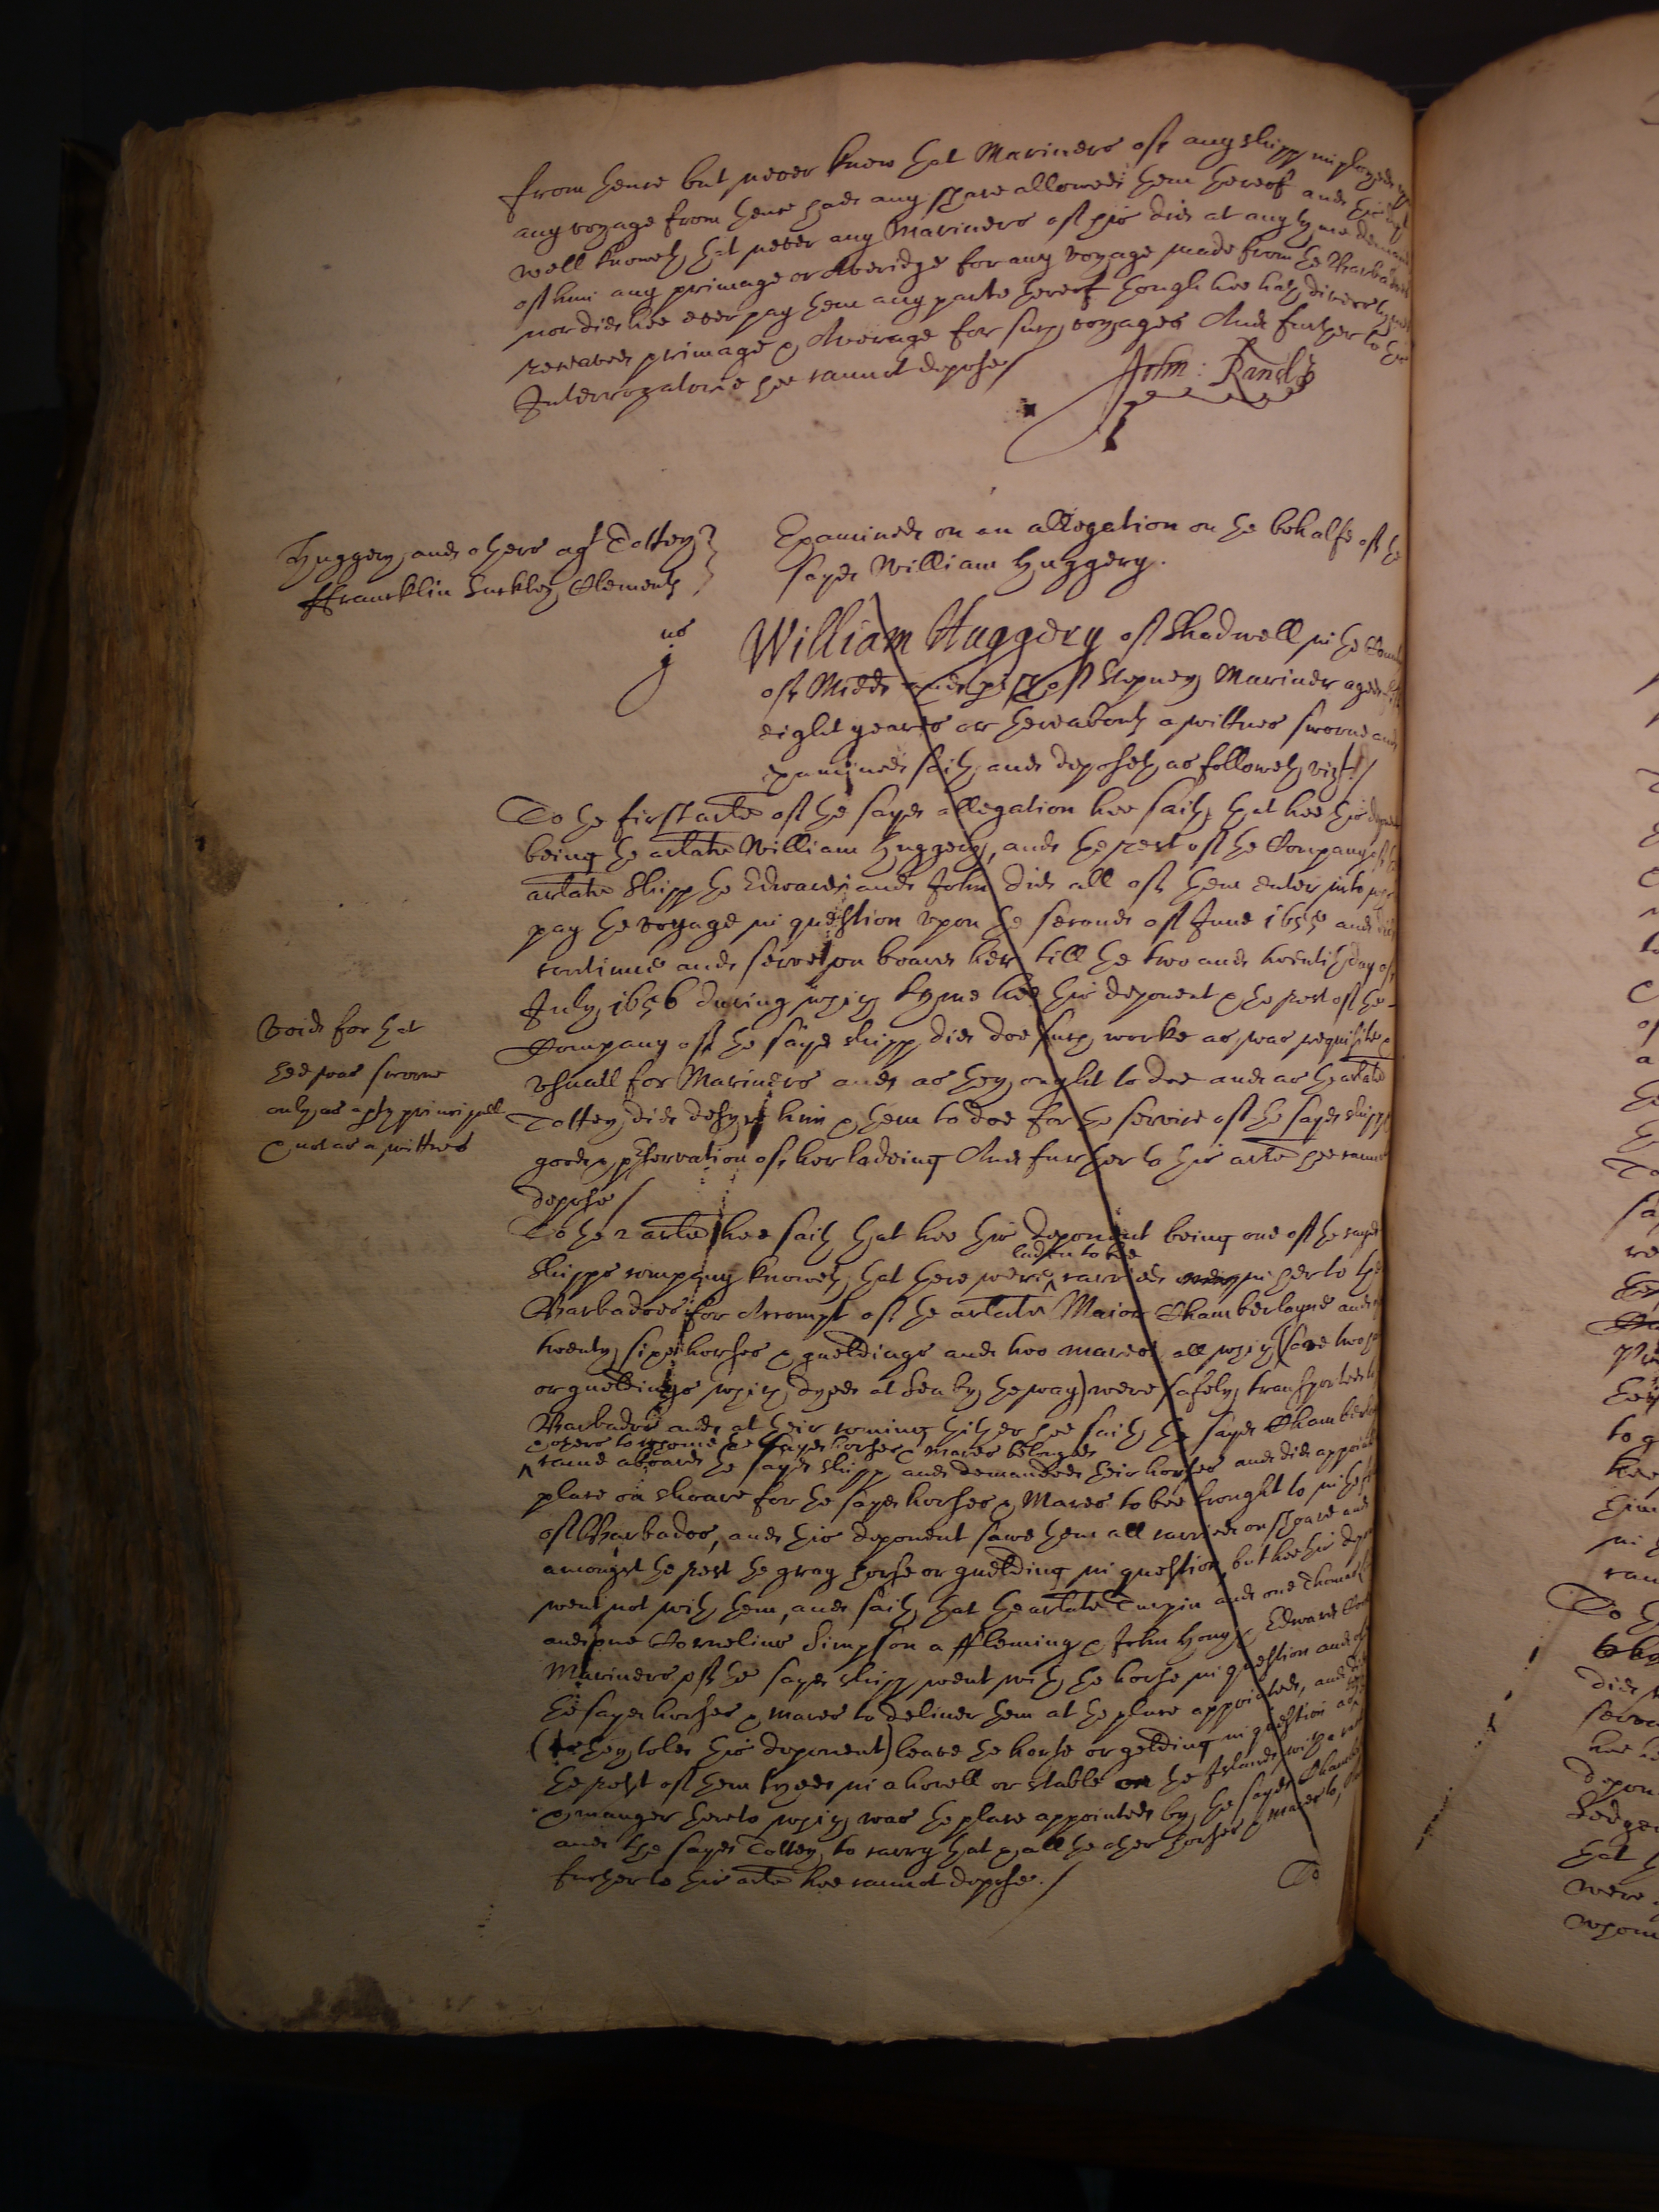 from hence but never knew that Mariners of any shipp imployed
any voyage from hence had any share allowed them thereof and this
well knoweth that never any Mariners of his did at any tyme demand
of him any primage or Averidge for any voyage made from the Barbados
nor did hee ever pay them any parte thereof though hee hath divers tymes
receaved primage & Average for such voyages And further to the
Interrogatorie hee cannot depose/
John: Rands
Huggery and others agt Tottey
ffrancklin Suckley Clements
Examined on an allegation on the behalfe of the
sayd William Huggery.
us
j
William Huggery of Shadwell in the County
of Midds and psh of Stepney Mariner aged
eight yeares or thereabouts a wittnes sworne and
examined saith and deposeth as followeth vizt./
To the first arte of the sayd allegation hee saith that hee this
being the arlate William Huggery, and the rest of the Company of the
arlate Shipp the Edward and John did all of them enter into
pay the voyage in question upon the second of June 1655 and did
continue and served on board her till the two and twentith day of
July 1656 during which tyme hee this deponent & the rest of the
Company of the sayd shipp did doe such worke as was requisite &
usuall for Mariners and as they ought to doe and as the arlate
Tottey did desyre him & them to doe for the service of the sayd shipp
good & pservation of her ladeing And further to this arte hee cannot
depose/
Void for that
hee was sworne
only as a pty principall
& not as a wittnes
To the 2 arte hee saith that hee this deponent being one of the sayd
laden to bee
shipps company knoweth that there were carried in her to the
Barbadoes for Accompt of the arlate Maior Chamberlayne and
twenty sixe horses & gueldings and two mares all which (save two
or gueldings which dyed at Sea by the way) were safely transported to
Barbados and at their coming thither hee saith the sayd Chamberlayne
& others to whome the sayd horses & mares belonged
came aboard the sayd shipp and demanded their horses and did appoint
place on shoare for the sayd horses & Mares to bee brought to in the
of Barbados, and this deponent sawe them all carried on shoare and
amongst the rest the gray horse or guelding in question, but hee this
went not with them, and saith that the arlate Turpin and one Thomas
and one Cornelius Simpson a ffleming & John Hony & Edward
Mariners of the sayd shipp went with the horse in question and
the sayd horses & mares to deliver them at the place appointed, and did
(as they told this deponent) leave the horse or gelding in question
the rest of them tyed in a hovell or stable on the Island with a
& manger thereto which was the place appointed by the sayd
and the sayd Tottey to carry that & all the other horses & mares to,
further to this arte hee cannot depose./
To